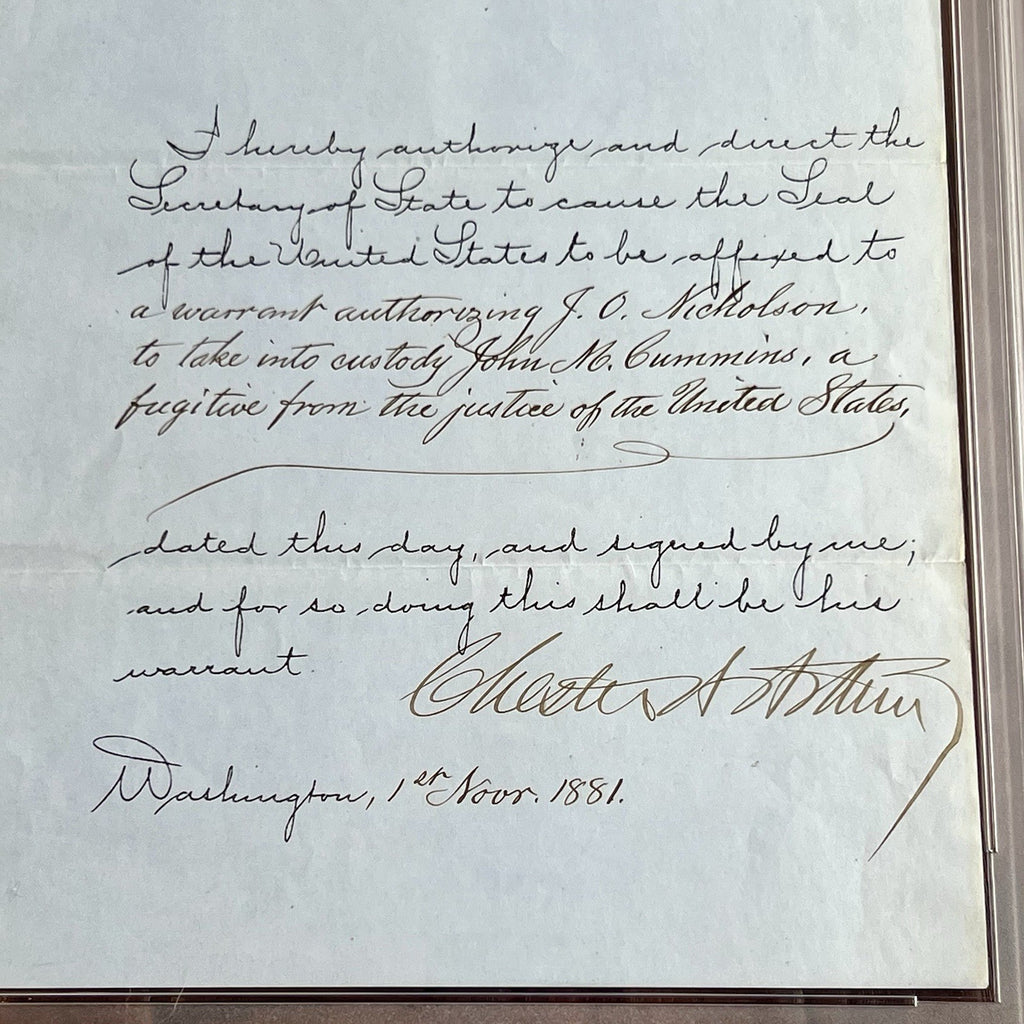 I hereby authorize and direct the
Secretary of State to cause the Seal
of the United States to be affixed to
a warrant authorizing J. O. Nicholson,
to take into custody John M. Cummins, a
fugitive from the justice of the United States,
dated this day, and signed by me;
and for so doing this shall be his
warrant.
Chester A Arthur
Washington, 1st Novr. 1881.